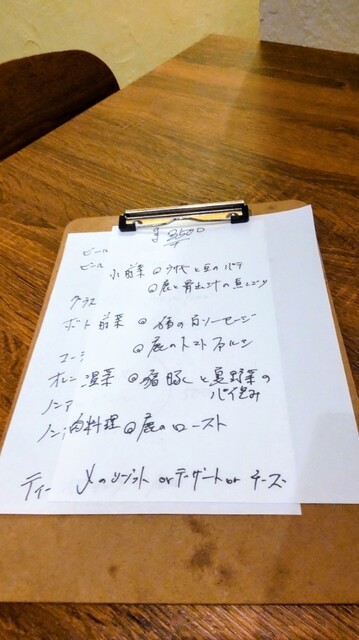 ビール
ビール 小前菜 @ と豆のパテ
@鹿と骨出汁の煮こごり
グラス
ボート 前菜 @猪の白ソーセージ
コーラ @鹿のトマトファルシ
オレン 温菜 @猪豚くと夏野菜の
パイ包み
ノンア
ノン 肉料理 @鹿のロースト
ティー 〆のリゾット orデザートor チーズ